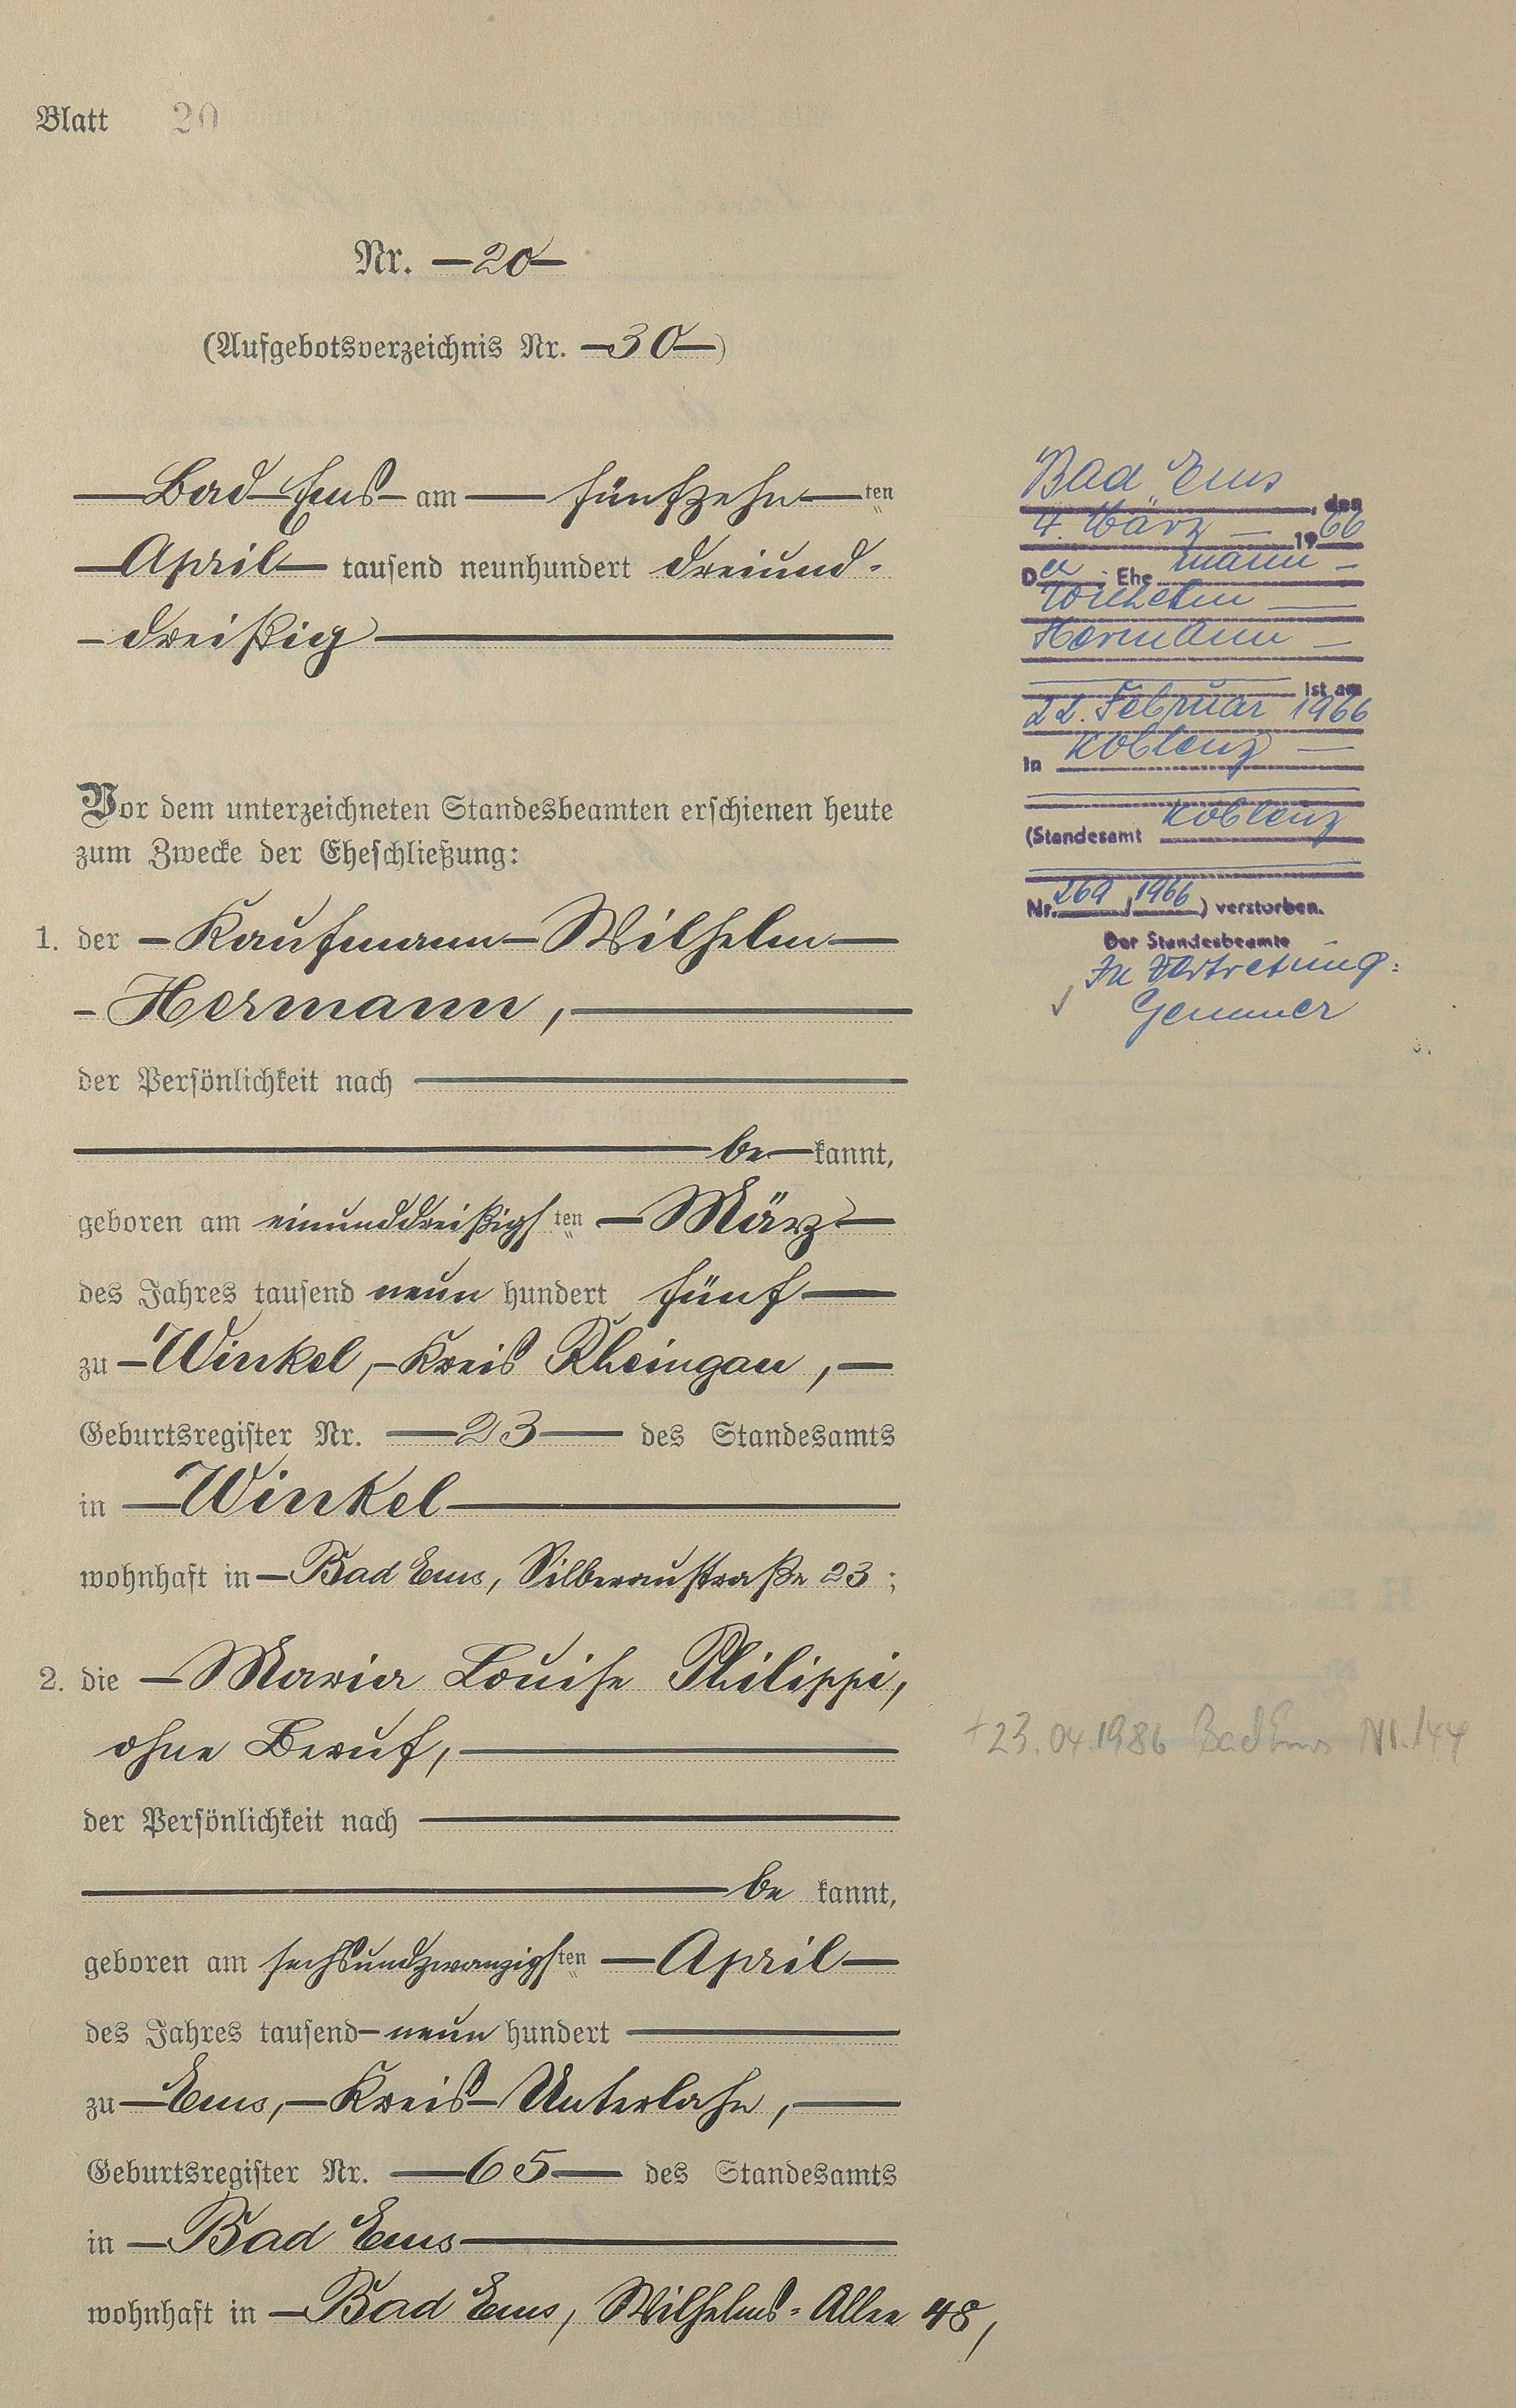 Blatt 20
Nr. —20—
(Aufgebotsverzeichnis Nr. —30—)
—Bad Ems— am — fünfzehn—ten
—April— tausend neunhundert dreiund-
- dreißig —
Vor dem unterzeichneten Standesbeamten erschienen heute
zum Zwecke der Eheschließung:
1. der — Kaufmann — Wilhelm —
- Hermann, —
der Persönlichkeit nach —
— be — kannt,
geboren am einunddreißigsten — März —
des Jahres tausend neun hundert fünf —
zu — Winkel, — Kreis Rheingau, —
Geburtsregister Nr. — 23 — des Standesamts
in — Winkel —
wohnhaft in — Bad Ems, Silberaustraße 23;
2. die — Maria Louise Philippi,
ohne Beruf, —
der Persönlichkeit nach —
— be kannt,
geboren am sechsundzwanzigsten — April —
des Jahres tausend — neun hundert —
zu — Ems, — Kreis — Unterlahn, —
Geburtsregister Nr. — 65 — des Standesamts
in — Bad Ems —
wohnhaft in — Bad Ems, Wilhelms-Allee 48,
Bad Ems, den
4. März — 1966
Der Ehemann —
Wilhelm —
Hermann —
ist am
22. Februar 1966
in Koblenz —
(Standesamt Koblenz
Nr. 269 / 1966) verstorben.
Der Standesbeamte
In Vertretung:
Gemmer
+23.04.1986 Bad Ems Nr. 144